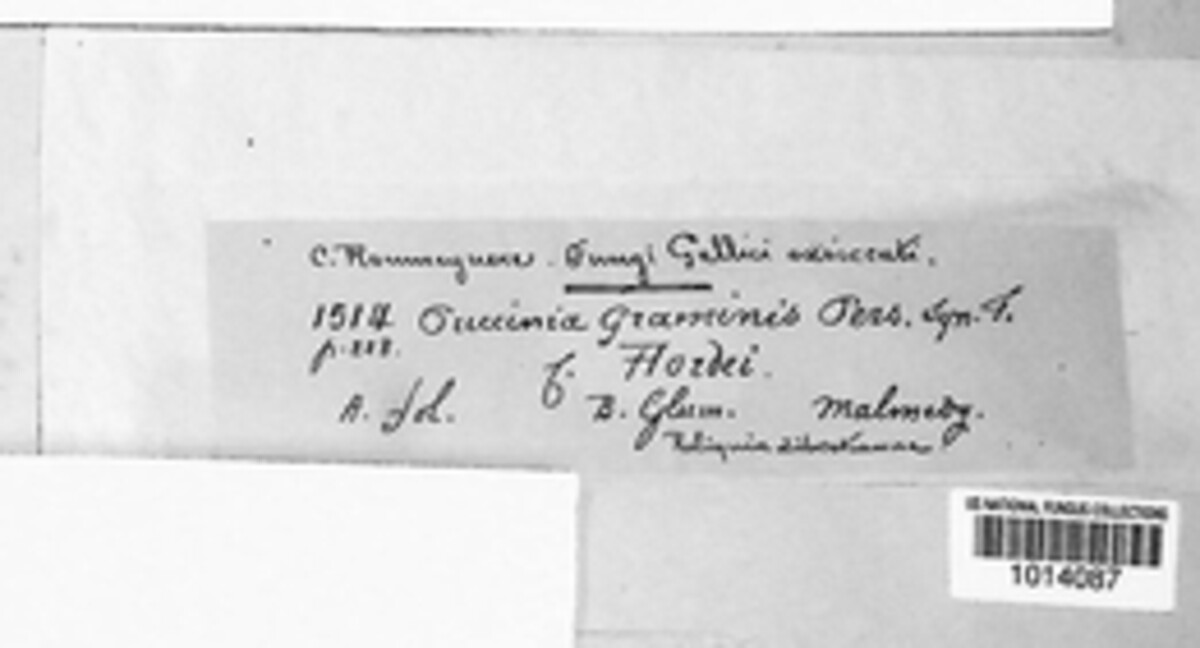 C. Roumeguere. Fungi Gallici exsiccati.
1514 Puccinia graminis Pers. Syn. F.
p. 228.
f. Hordei.
A. fol. B. Glum. Malmedy.
Reliquiae Libertianae
US NATIONAL FUNGUS COLLECTIONS
1014087